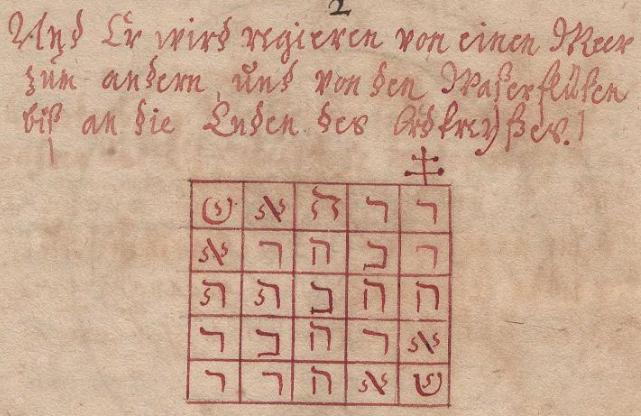 2
Und Er wird regieren von einen Meer
zum andern, und von den Waßerflüßen
biß an die Enden des Erdkreyßes.
ר ר ה א ש
ר ב ה ר א
ה ה ב ה ה
א ר ה ב ר
ש א ה ר ר